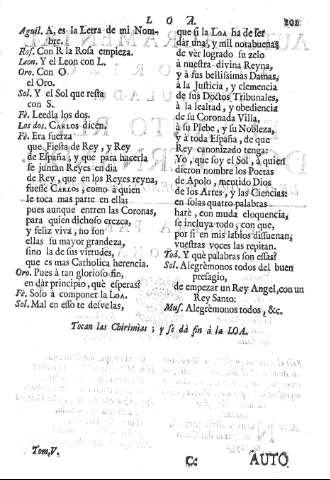 LOA.
201
Aguil. A, es la Letra de mi Nom-
bre.
Ros. Con R la Rosa empieza.
Leon. Y el Leon con L.
Oro. Con O
el Oro.
Sol. Y el Sol que resta
con S.
Fè. Leedla los dos.
Los dos. CARLOS dicen.
Fè. Era fuerza
que Fiesta de Rey, y Rey
de España; y que para hacerla
se juntan Reyes en dia
de Rey, que en los Reyes reyna,
fuesse CARLOS; como à quien
le toca mas parte en ellas
pues aunque entren las Coronas,
para quien dichoso crezca,
y feliz viva, no son
ellas su mayor grandeza,
sino la de sus virtudes,
que es mas Catholica herencia.
Oro. Pues à tan glorioso fin,
en dàr principio, què esperas?
Fè. Solo à componer la LOA.
Sol. Mal en esso te desvelas,
que si la LOA ha de ser
dar unas, y mil norabuenas
de vèr logrado su zelo
à nuestra divina Reyna,
y à sus bellissimas Damas,
à la Justicia, y clemencia
de sus Doctos Tribunales,
à la lealtad, y obediencia
de su Coronada Villa,
à su Plebe, y su Nobleza,
y à toda España, de que
Rey canonizado tenga:
Yo, que soy el Sol, à quien
dieron nombre los Poetas
de Apolo, mentido Dios
de los Artes, y las Ciencias:
en solas quatro palabras
harè, con muda eloquencia,
se incluya todo; con que,
por si en mis labios dissuenan,
vuestras voces las repitan.
Tod. Y què palabras son essas?
Sol. Alegrèmonos todos del buen
presagio,
de empezar un Rey Angel, con un
Rey Santo:
Mus. Alegrèmonos todos, &c.
Tocan las Chirimias; y se dà fin à la LOA.
Tom. V.
C:
AUTO